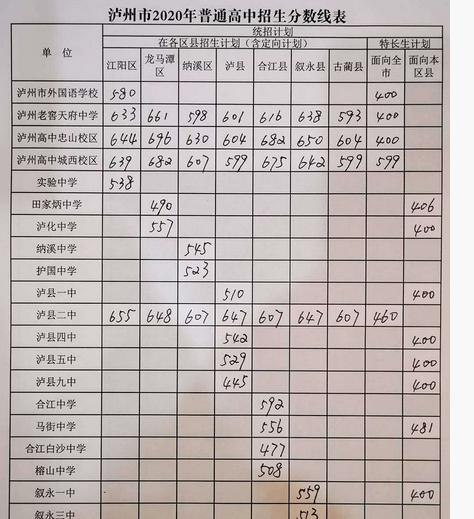 泸州市2020年普通高中招生分数线表
单 位 统招计划
在各区县招生计划（含定向计划） 特长生计划
江阳区 龙马潭区 纳溪区 泸县 合江县 叙永县 古蔺县 面向全市 面向本区县
泸州市外国语学校 580 400
泸州老窖天府中学 633 661 598 601 616 638 593 400
泸州高中忠山校区 644 696 630 604 682 650 604 400
泸州高中城西校区 639 682 607 599 675 642 599 599
实验中学 538
田家炳中学 490 406
泸化中学 557 400
纳溪中学 545
护国中学 523
泸县一中 510 400
泸县二中 655 648 607 647 607 647 607 460
泸县四中 542 400
泸县五中 529 400
泸县九中 445 400
合江中学 592
马街中学 556 481
合江白沙中学 477
榕山中学 508
叙永一中 559 400
叙永三中 513